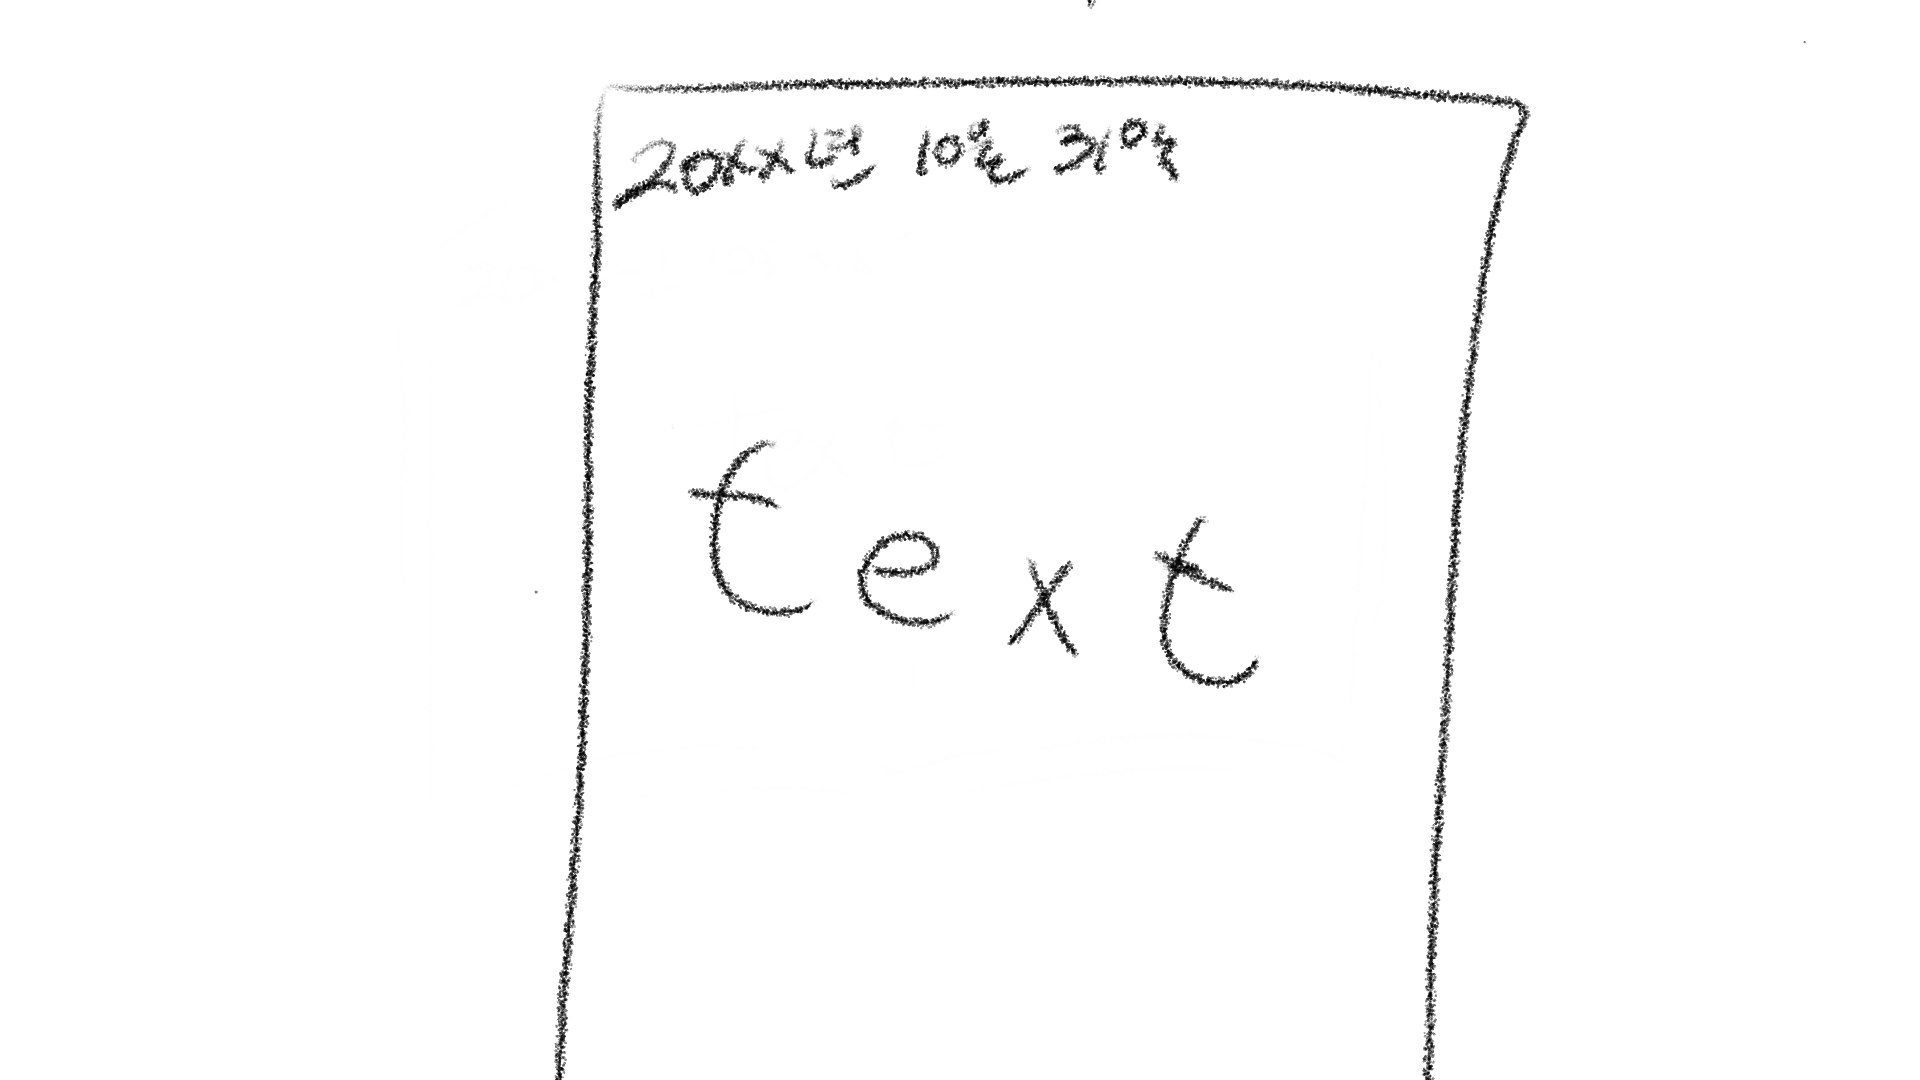 20xx년 10월 31일
text